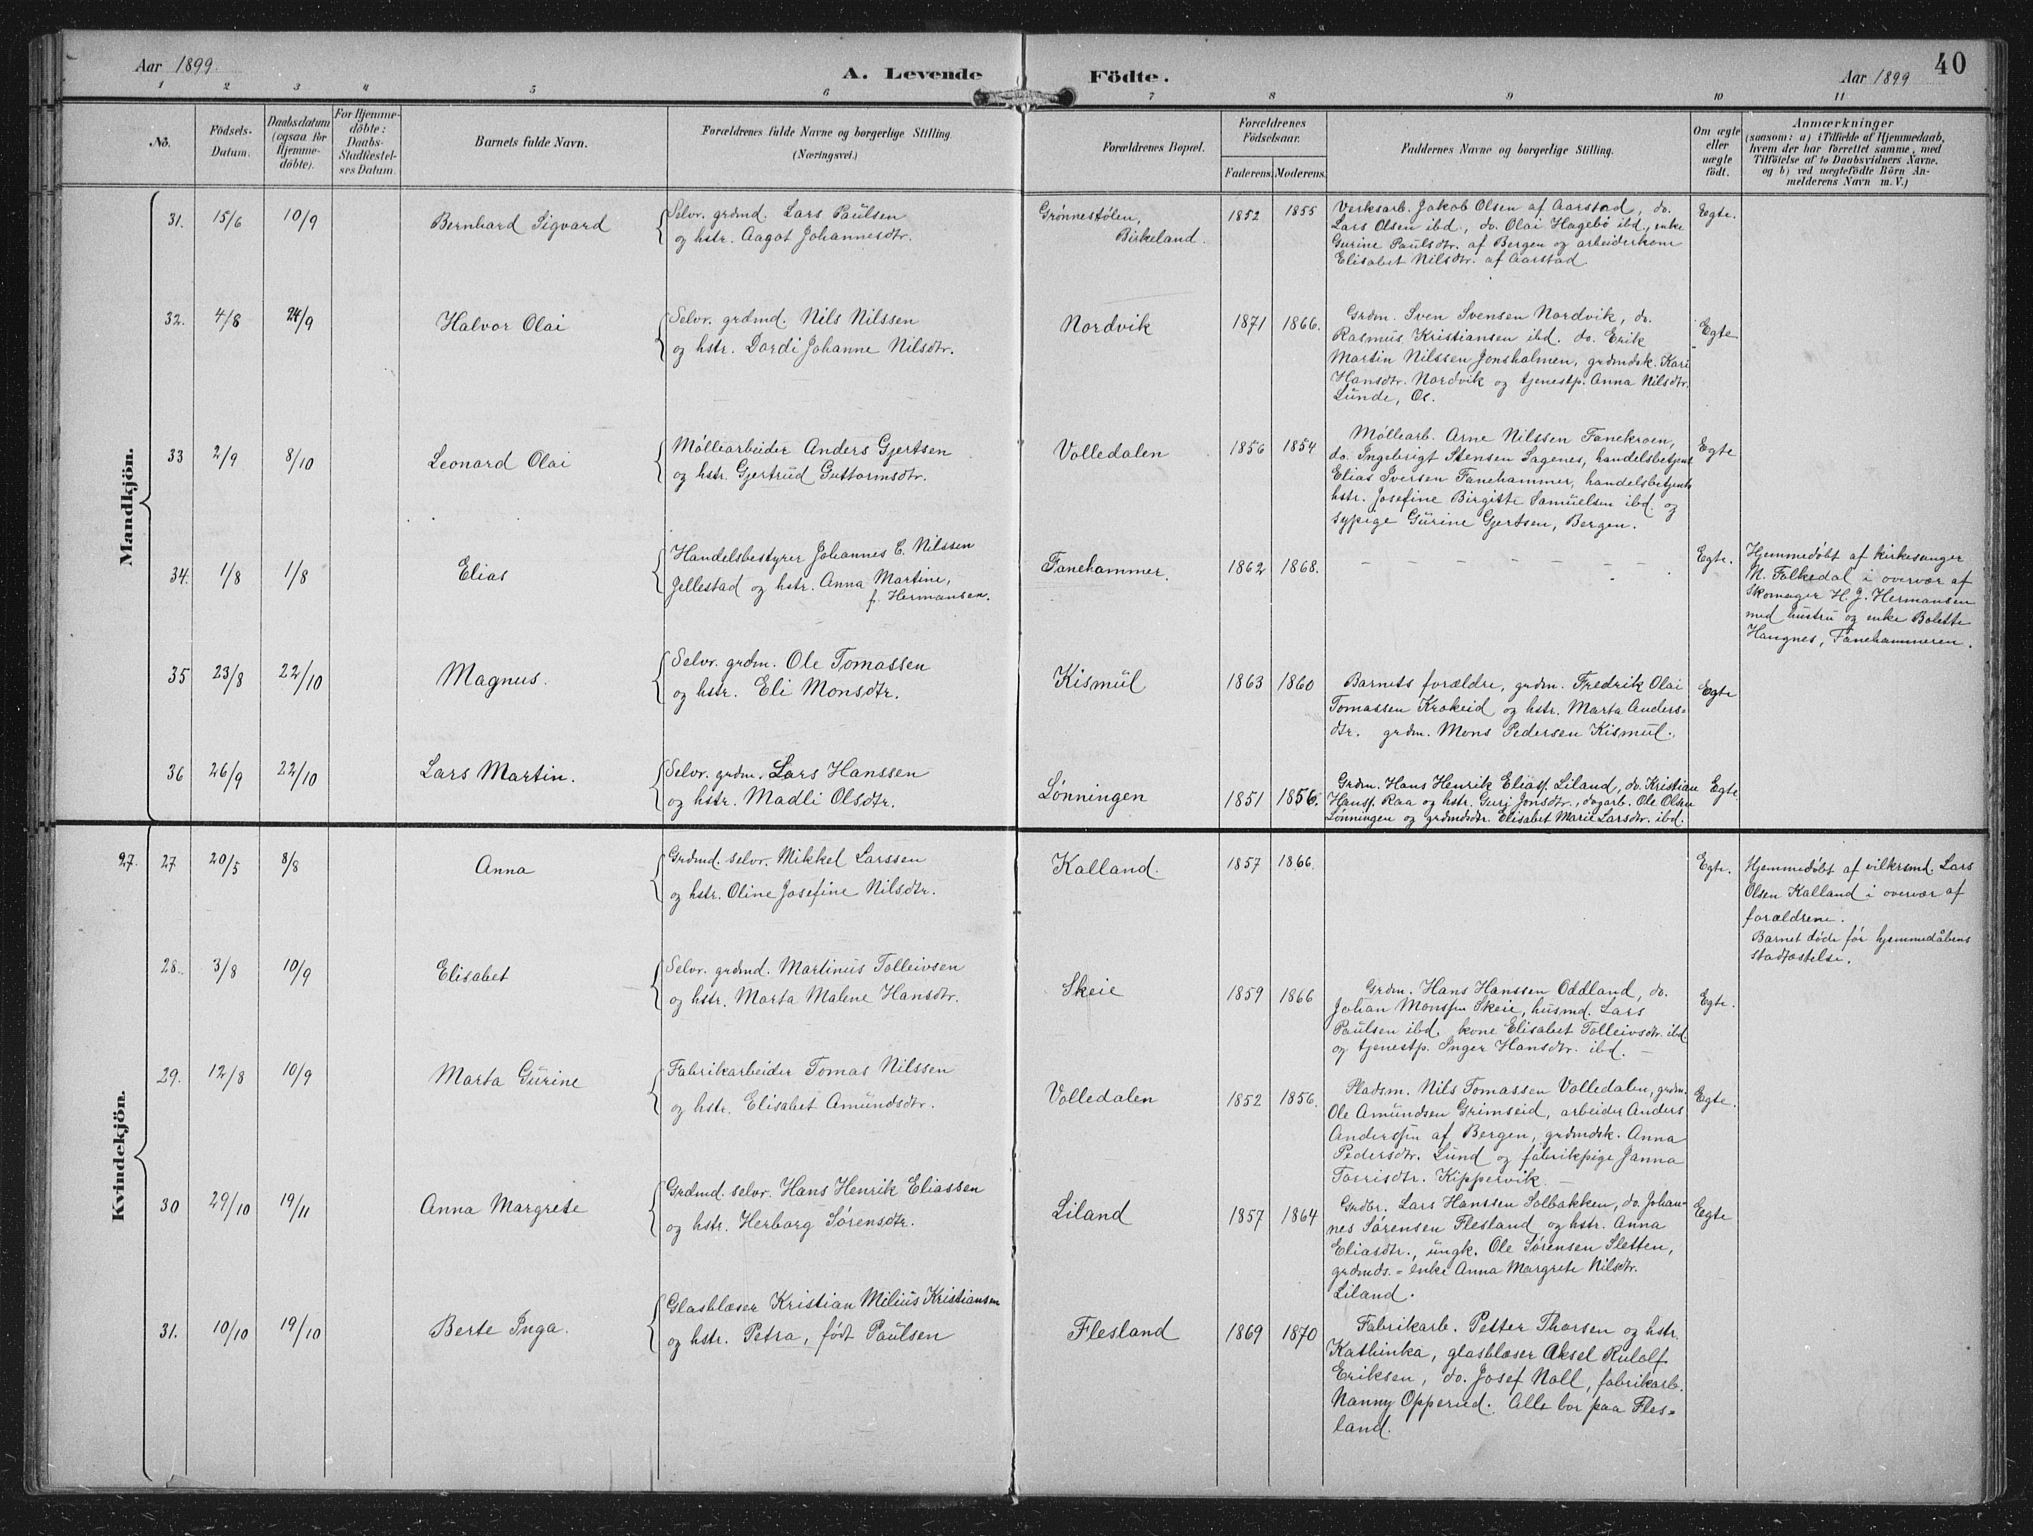 Aar 1899.
A. Levende Födte.
Aar 1899
40
1 2 3 4 5 6 7 8 9 10 11
No.
Födsels-
Datum.
Daabsdatum
(ogsaa for
Hjemme-
döbte).
For Hjemme-
döbte:
Daabs-
Stadfæstel-
ses Datum.
Barnets fulde Navn.
Forældrenes fulde Navne og borgerlige Stilling
(Næringsvei.)
Forældrenes Bopæl.
Forældrenes
Födselsaar.
Faderens. Moderens.
Faddernes Navne og borgerlige Stilling.
Om ægte
eller
uægte
födt.
Anmærkninger
(saasom: a) i Tilfælde af Hjemmedaab,
hvem der har forrettet samme, med
Tilföielse af to Daabsvidners Navne.
og b) ved uægtefödte Börn An-
melderens Navn m. V.)
Mandkjön.
31. 15/6 10/9 Bernhard Sigvard
Selv. grdmd. Lars Paulsen
og hstr. Aagot Johannesdtr.
Grønnestølen,
Birkeland.
1852 1855
Verksarb. Jakob Olsen af Aarstad, do.
Lars Olsen ibd., do. Olai Hagebø ibd., enke
Gurine Paulsdtr. af Bergen og arbeiderkone
Elisabet Nilsdtr. af Aarstad
Egte.
32. 4/8 24/9 Halvor Olai
Selv. grdmd. Nils Nilssen
og hstr. Dordi Johanne Nilsdtr.
Nordvik
1871 1866.
Grdm. Sven Svensen Nordvik, do.
Rasmus Kristiansen ibd. do. Erik
Martin Nilssen Jonsholmen, grdmdsk. Kari
Hansdtr. Nordvik og tjenestp. Anna Nilsdtr.
Lunde, Os.
Egte
33 2/9 8/10 Leonard Olai
Møllearbeider Anders Gjertsen
og hstr. Gjertrud Guttormsdtr.
Volledalen
1856 1854
Møllearb. Arne Nilssen Fanekroen,
do. Ingebrigt Stensen Sagenes, handelsbetjent
Elias Iversen Fanehammer, handelsbetjents
hstr. Josefine Birgitte Samuelsen ibd. og
sypige Gurine Gjertsen, Bergen.
Egte
34. 1/8 1/8 Elias
Handelsbestyrer Johannes C. Nilssen
Jellestad og hstr. Anna Martine,
f. Hermansen.
Fanehammer.
1862 1868.
– – – – – –
Egte.
Hjemmedøbt af kirkesanger
N. Folkedal i overvær af
Skomager H. J. Hermansen
med hustru og enke Bolette
Haugnes, Fanehammeren.
35 23/8 22/10 Magnus.
Selv. grdm. Ole Tomassen
og hstr. Eli Monsdtr.
Kismul
1863 1860
Barnets forældre, grdm. Fredrik Olai
Tomassen Krokeid og hstr. Marta Anders-
dtr. grdm. Mons Pedersen Kismul.
Egte
36 26/9 22/10 Lars Martin.
Selv. grdm. Lars Hanssen
og hstr. Madli Olsdtr.
Lønningen
1851 1856.
Grdm. Hans Henrik Eliass. Liland, do. Kristian
Hanss. Raa og hstr. Guri Jonsdtr., dagarb. Ole Olsen
Lønningen og grdmdsdtr. Elisabet Marie Larsdtr. ibd.
Egte.
Kvindekjön.
27. 27. 20/5 8/8 Anna
Grdmd. selv. Mikkel Larssen
og hstr. Oline Josefine Nilsdtr.
Kalland.
1857 1866.
Egte.
Hjemmedøbt af vilkrsmd. Lars
Olsen Kalland i overvær af
forældrene.
Barnet døde før hjemmedåbens
stadfæstelse.
28. 3/8 10/9 Elisabet
Selv. grdmd. Martinus Tolleivsen
og hstr. Marta Malene Hansdtr.
Skeie
1859 1866
Grdm. Hans Hanssen Oddland, do.
Johan Monssen Skeie, husmd. Lars
Paulsen ibd. kone Elisabet Tolleivsdtr. ibd
og tjenestp. Inger Hansdtr. ibd. –
Egte.
29. 12/8 10/9 Marta Gurine
Fabrikarbeider Tomas Nilssen
og hstr. Elisabet Amundsdtr.
Volledalen
1852 1856.
Pladsm. Nils Tomassen Volledalen, grdm.
Ole Amundsen Grimseid, arbeider Anders
Anderssen af Bergen, grdmdsk. Anna
Pedersdtr. Lund og fabrikpige Janna
Torrisdtr. Kippervik. –
Egte.
30 29/10 19/11 Anna Margrete
Grdmd. selv. Hans Henrik Eliassen
og hstr. Herborg Sørensdtr.
Liland
1857 1864
Grdbr. Lars Hanssen Solbakken, do. Johan-
nes Sørensen Flesland og hstr. Anna
Eliasdtr., ungk. Ole Sørensen Sletten,
grdmds.- enke Anna Margrete Nilsdtr.
Liland.
Egte
31. 10/10 19/10 Berte Inga.
Glasblæser Kristian Milius Kristiansen
og hstr. Petra, født Paulsen
Flesland
1869 1870
Fabrikarb. Petter Thorsen og hstr.
Kathinka, glasblæser Aksel Rudolf
Eriksen, do. Josef Noll, fabrikarb.
Nanny Opperud. Alle bor paa Fles-
land.